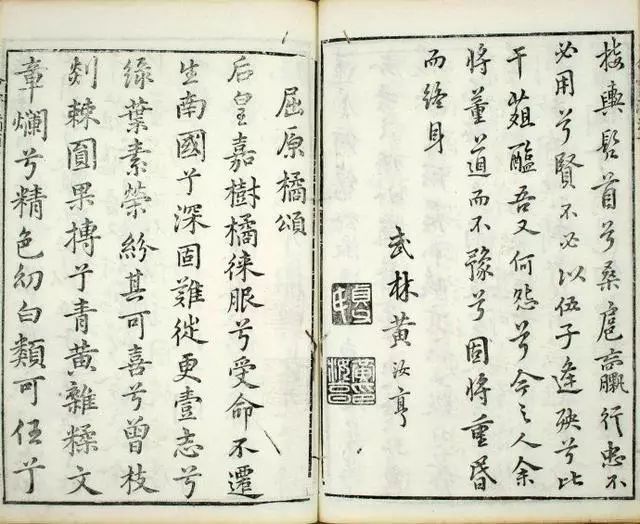 接輿髡首兮桑扈臝行忠不
必用兮賢不必以伍子逢殃兮比
干葅醢吾又何怨兮今之人余
將董道而不豫兮固將重昏
而終身
武林黃汝亨
屈原橘頌
后皇嘉樹橘徠服兮受命不遷
生南國兮深固難徙更壹志兮
綠葉素榮紛其可喜兮曾枝
剡棘圓果摶兮青黃雜糅文
章爛兮精色內白類可任兮